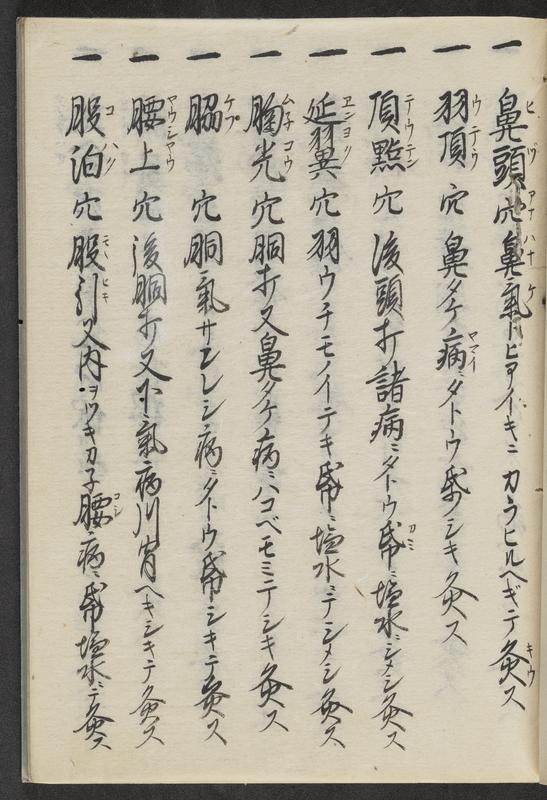 一 鼻頭穴 鼻氣トヒヨイキニカラヒルヘギテ灸ス
一 羽頂穴 鼻タケ病ニタトウ帋シキ灸ス
一 頂點穴 後頭ホ諸病ニタトウ帋ニ塩水ニシメシ灸ス
一 延羽翼穴 羽ウチモノイテキ帋ニ塩水ニテシメシ灸ス
一 胸光穴 胴ホ又鼻タケ病ニハコベモミテシキ灸ス
一 脇 穴 胴氣サエレシ病ニタトウ帋シキテ灸ス
一 腰上穴 後胴ホ又小氣病川骨ヘキシキテ灸ス
一 股泊穴 股引又内ヲツキカ子腰病ニ帋塩水ニテ灸ス